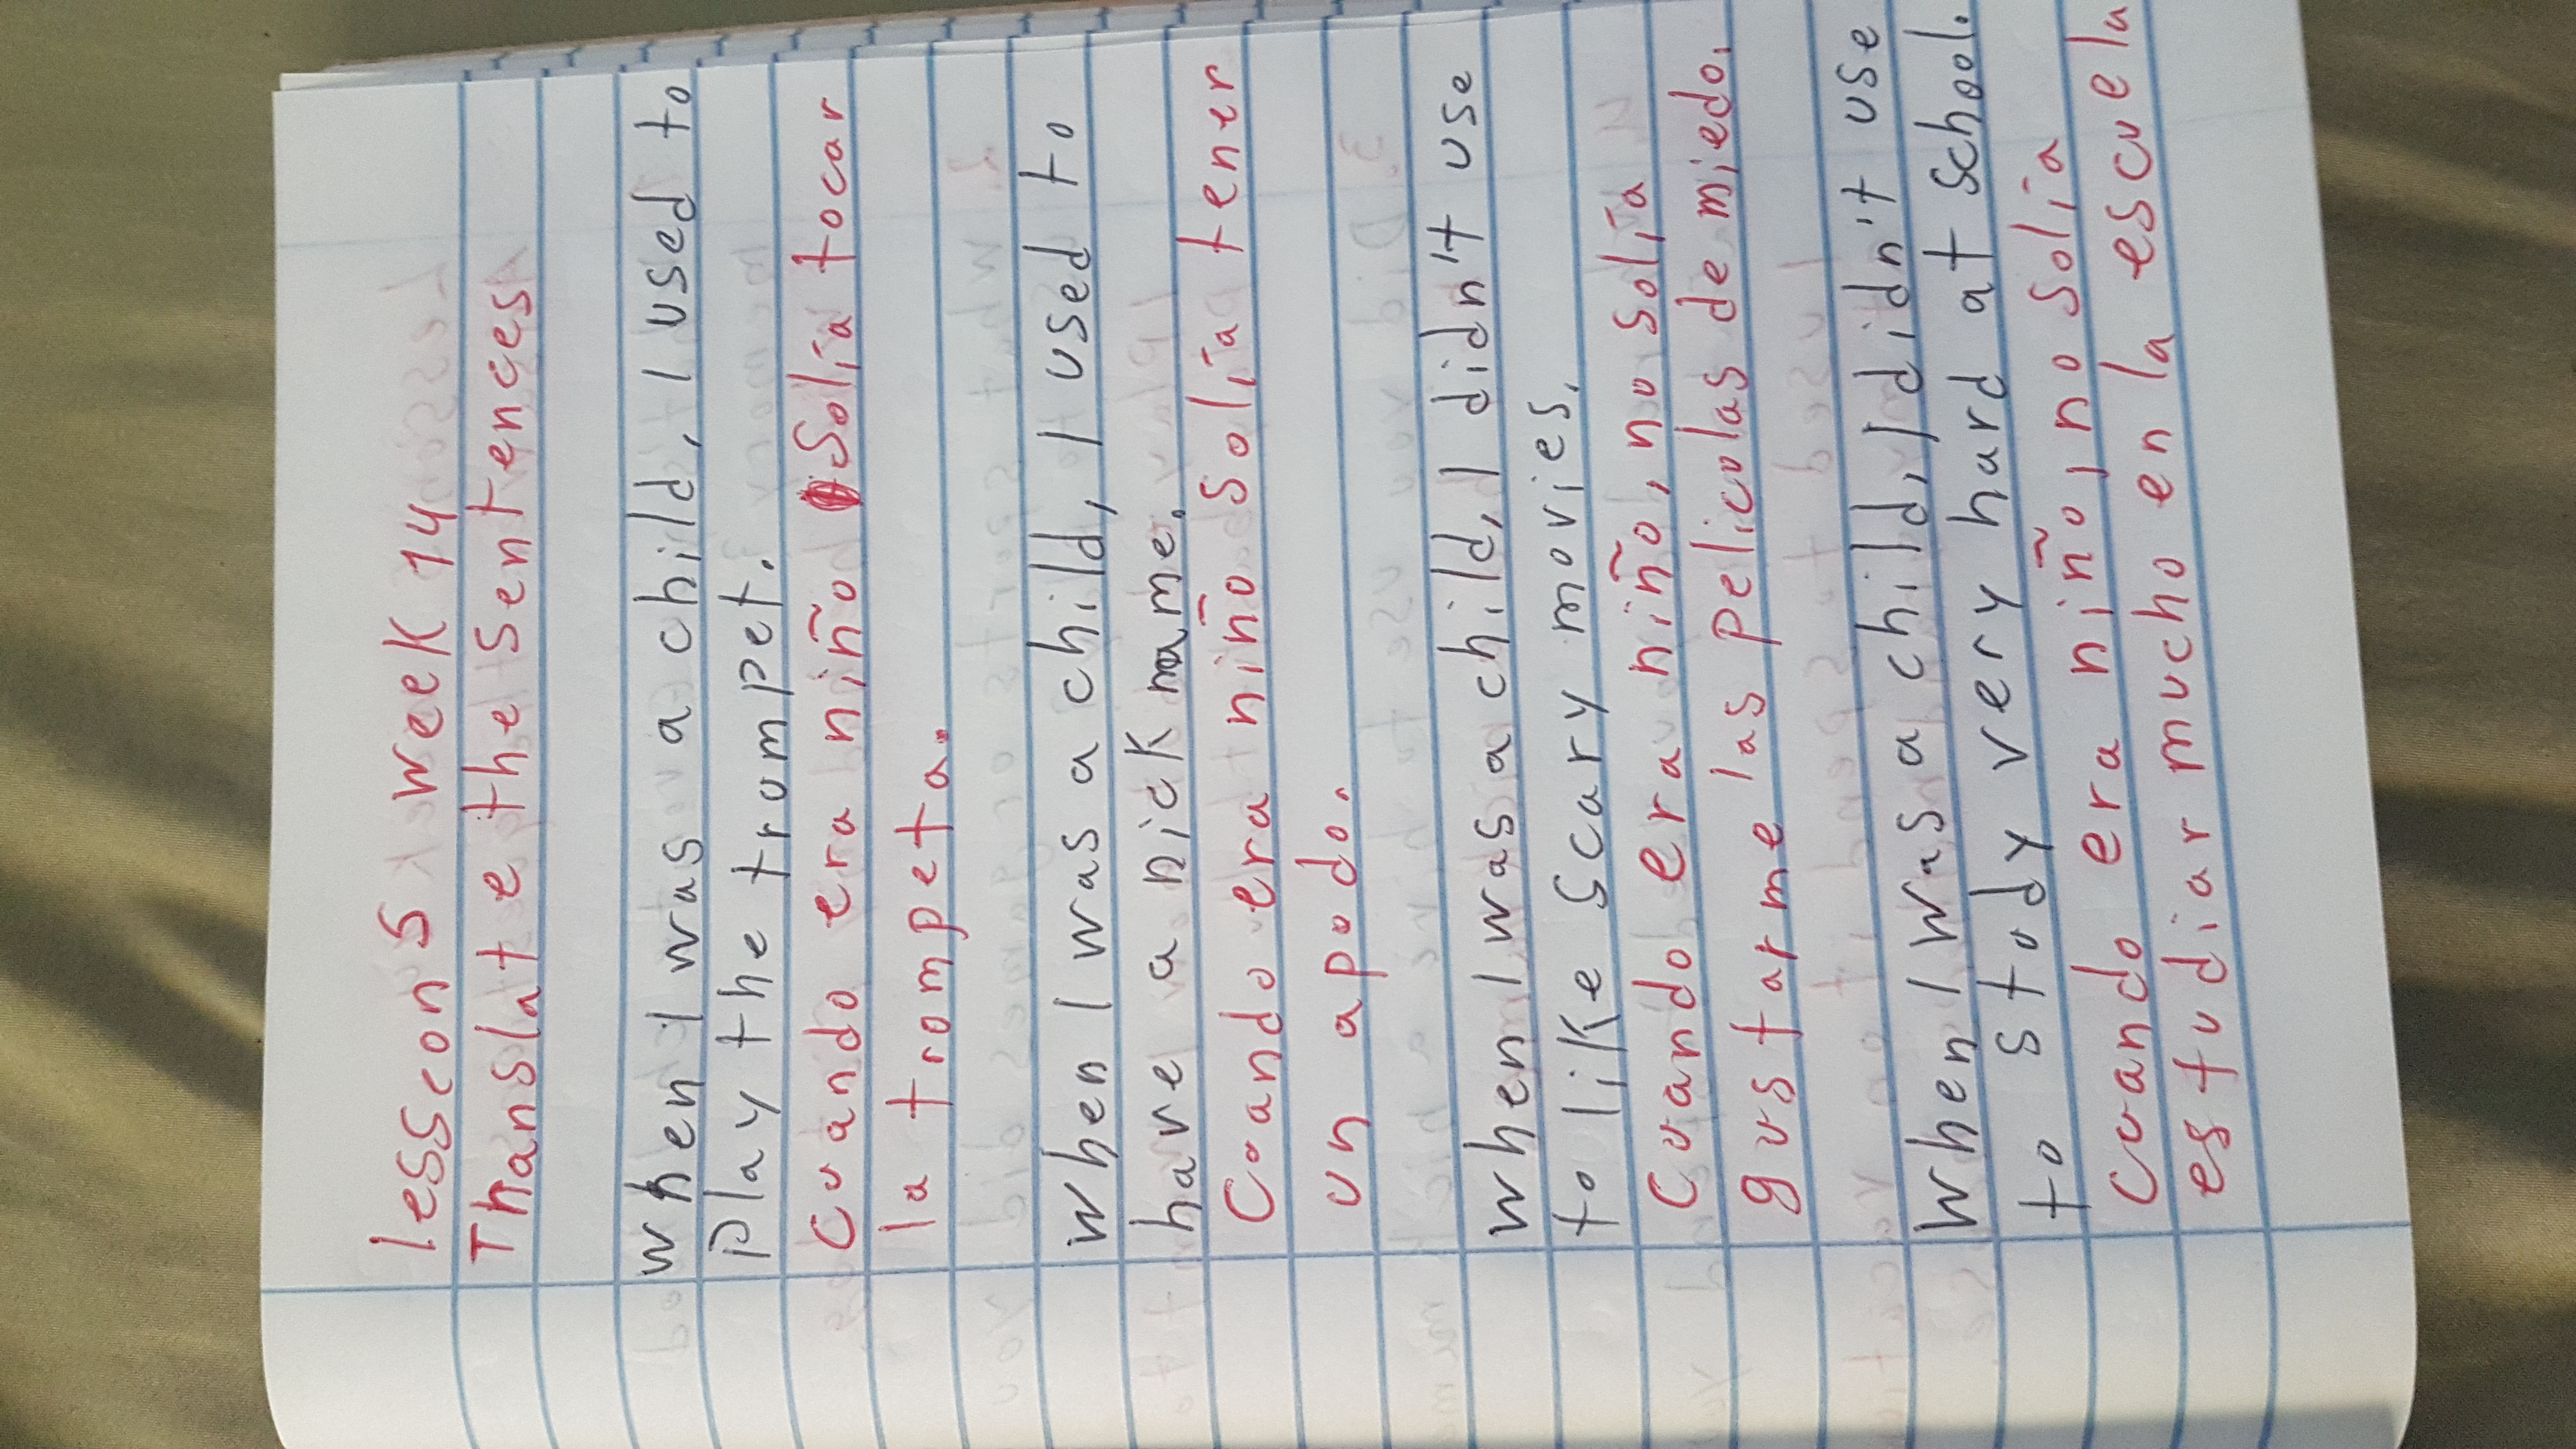 lesscon 5 week 14
Thanslate the sentences
when I was a child, I used to
play the trompet.
Cuando era niño Solía tocar
la trompeta.
When I was a child, I used to
have a nick mame.
Coando era niño Solía tener
un apodo.
When I was a child, I didn't use
to like scary movies.
Cuando era niño, no solía
gustarme las pelicolas de miedo.
When I was a child, I didn't use
to stody very hard at school.
Cuando era niño, no solía
estudiar mucho en la escuela